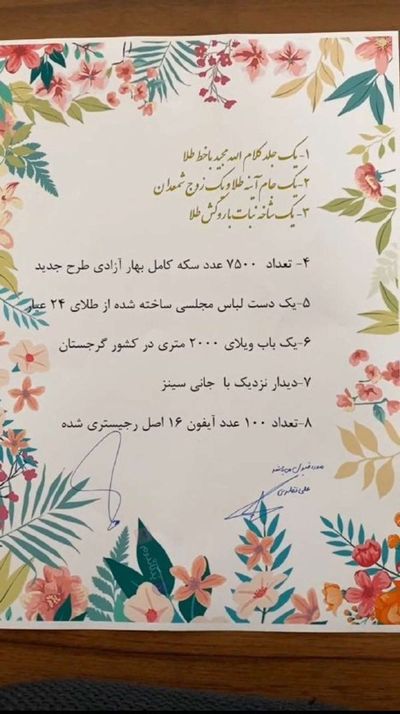 ۱- یک جلد کلام الله مجید با خط طلا
۲- یک جام آینه طلا و یک زوج شمعدان
۳- یک شاخه نبات با روکش طلا
۴- تعداد ۷۵۰۰ عدد سکه کامل بهار آزادی طرح جدید
۵-یک دست لباس مجلسی ساخته شده از طلای ۲۴ عیار
۶-یک باب ویلای ۲۰۰۰ متری در کشور گرجستان
۷-دیدار نزدیک با جانی سینز
۸-تعداد ۱۰۰ عدد آیفون ۱۶ اصل رجیستری شده
مورد قبول می باشد